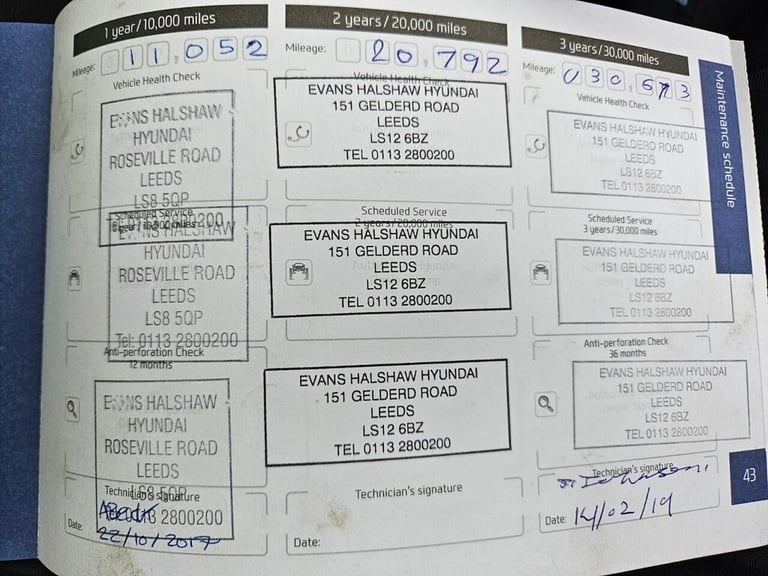 1 year/10,000 miles
Mileage: 11,052
Vehicle Health Check
EVANS HALSHAW
HYUNDAI
ROSEVILLE ROAD
LEEDS
LS8 5QP
0113 2800200
Scheduled Service
1 year/10,000 miles
EVANS HALSHAW
HYUNDAI
ROSEVILLE ROAD
LEEDS
LS8 5QP
Tel: 0113 2800200
Anti-perforation Check
12 months
EVANS HALSHAW
HYUNDAI
ROSEVILLE ROAD
LEEDS
LS8 5QP
Technician's signature
0113 2800200
Date: 22/10/2017
2 years/20,000 miles
Mileage: 20,792
Vehicle Health Check
EVANS HALSHAW HYUNDAI
151 GELDERD ROAD
LEEDS
LS12 6BZ
TEL 0113 2800200
Scheduled Service
2 years/20,000 miles
EVANS HALSHAW HYUNDAI
151 GELDERD ROAD
LEEDS
LS12 6BZ
TEL 0113 2800200
EVANS HALSHAW HYUNDAI
151 GELDERD ROAD
LEEDS
LS12 6BZ
TEL 0113 2800200
Technician's signature
Date:
3 years/30,000 miles
Mileage: 030,573
Vehicle Health Check
EVANS HALSHAW HYUNDAI
151 GELDERD ROAD
LEEDS
LS12 6BZ
TEL 0113 2800200
Scheduled Service
3 years/30,000 miles
EVANS HALSHAW HYUNDAI
151 GELDERD ROAD
LEEDS
LS12 6BZ
TEL 0113 2800200
Anti-perforation Check
36 months
EVANS HALSHAW HYUNDAI
151 GELDERD ROAD
LEEDS
LS12 6BZ
TEL 0113 2800200
Technician's signature
Date: 14/02/19
Maintenance schedule
43